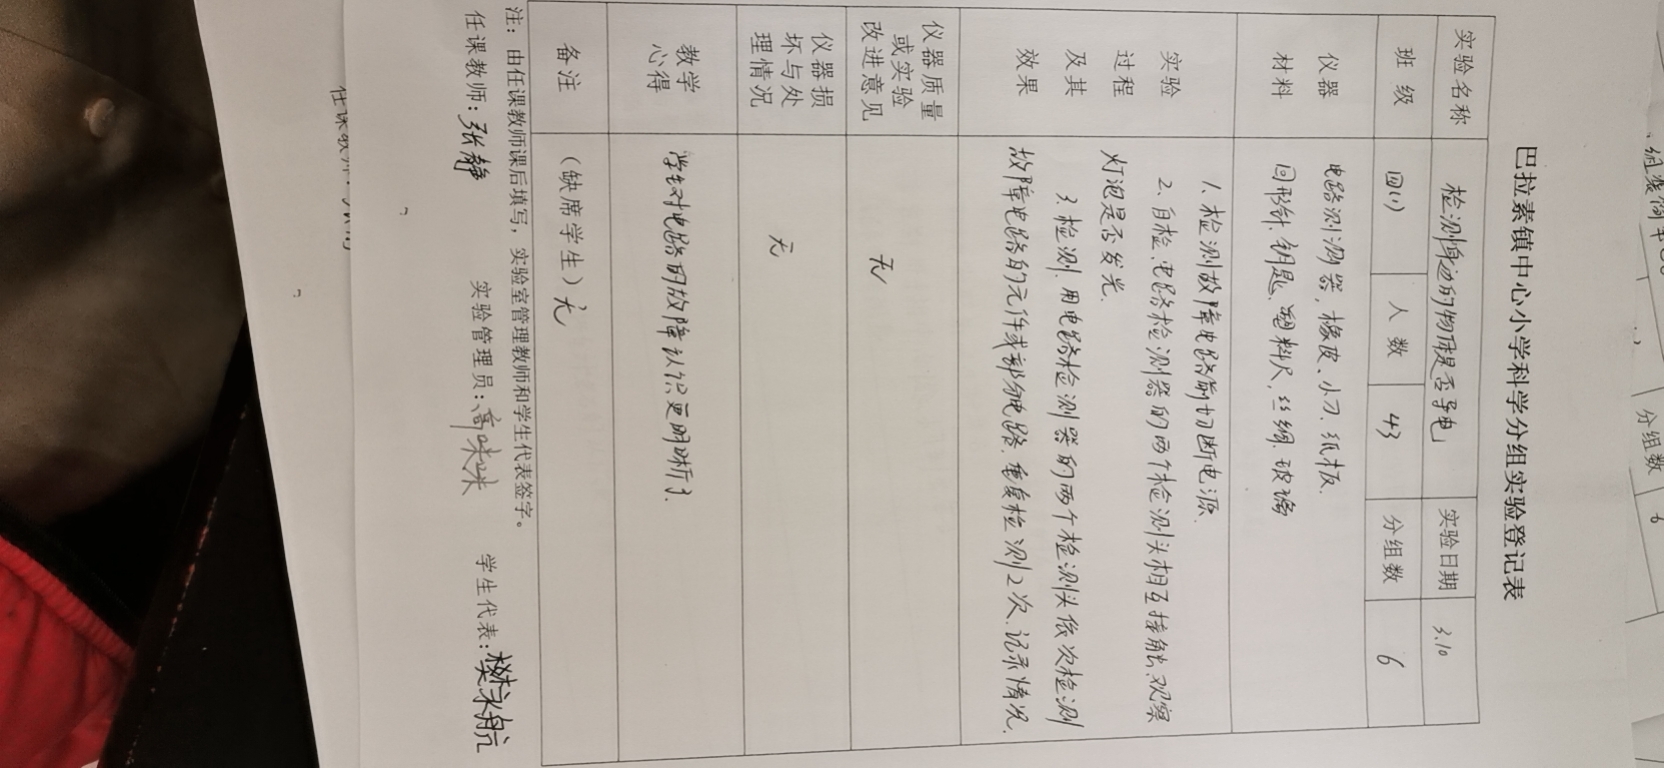 巴拉素镇中心小学科学分组实验登记表
实验名称 检测身边的物体是否导电 实验日期 3.10
班级 四(1) 人数 43 分组数 6
仪器
材料
电路测测器，橡皮、小刀、纸板、
回形针、钥匙、塑料尺，丝绸、玻璃
实验
过程
及其
效果
1. 检测故障电路前切断电源.
2. 自检、电路检测器的两个检测头相互接触、观察
灯泡是否发光.
3. 检测, 用电路检测器的两个检测头依次检测
故障电路的元件或部分电路. 重复检测2次、记录情况.
仪器质量
或实验
改进意见
无
仪器损
坏与处
理情况
无
教学
心得
学生对电路的故障认识更明晰了.
备注 （缺席学生）无
注：由任课教师课后填写，实验室管理教师和学生代表签字。
任课教师：张静 实验管理员： 学生代表：樊永航
任课教师：
分组数 6